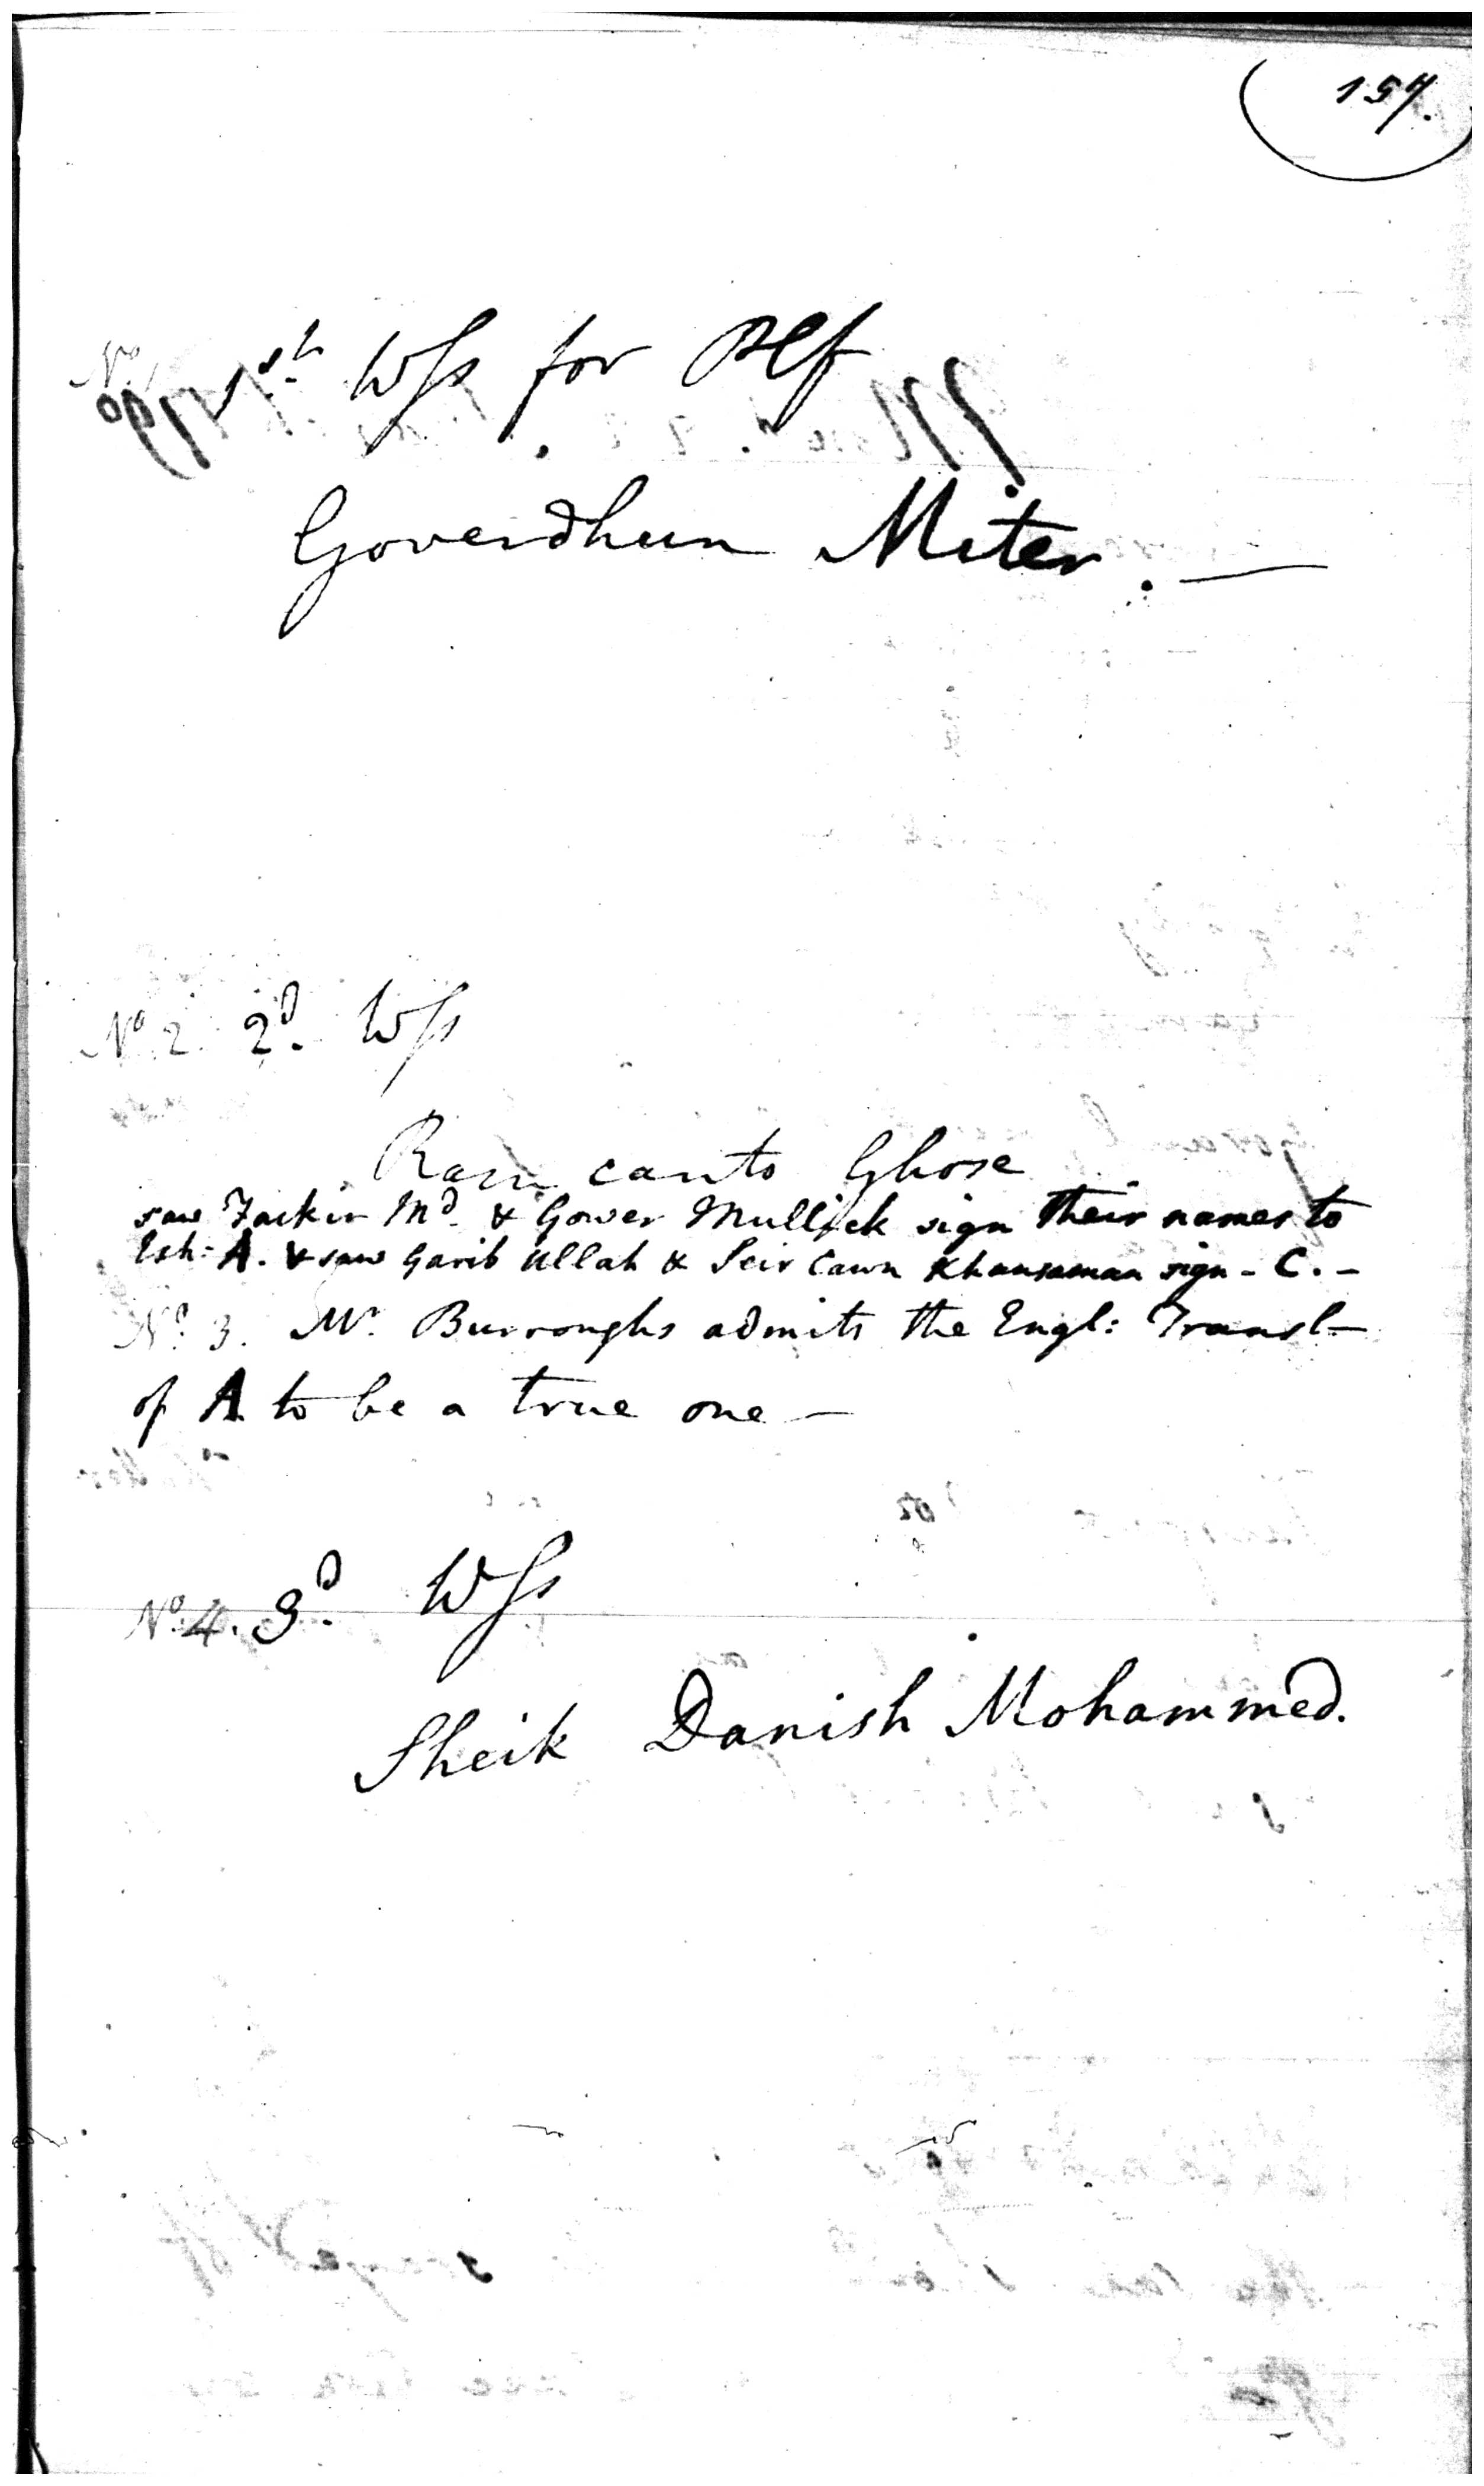 157.
No 1 1st. Wss for Plf
Goverdhun Miter. —
No 2. 2d. Wss
Ram canto Ghose
saw Fackir Md. & Gower Mullick sign their names to
Exh: A. & saw Garib Ullah & Seir Cawn Khansaman sign - C. -
No 3. Mr. Burroughs admits the Engl: Transl—
of A to be a true one —
No. 4. 3d. Wss
Sheik Danish Mohammed.